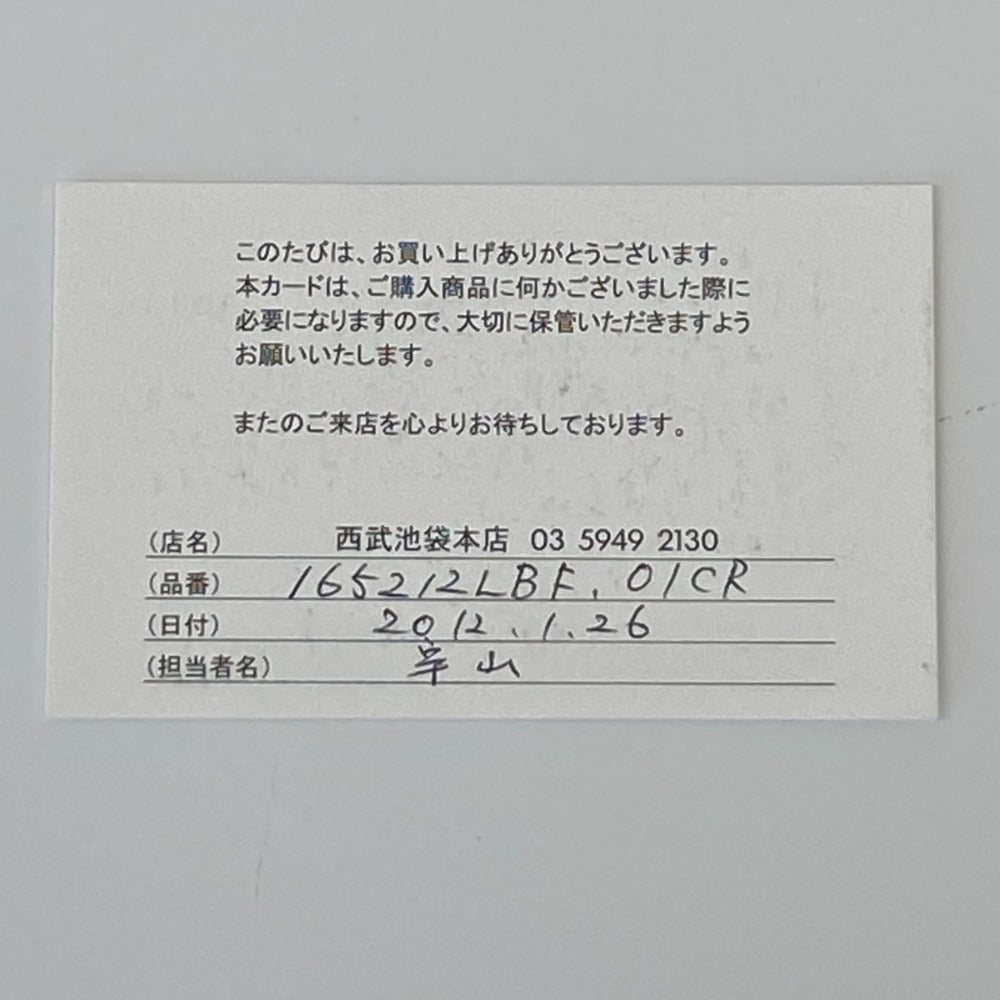 このたびは、お買い上げありがとうございます。
本カードは、ご購入商品に何かございました際に
必要になりますので、大切に保管いただきますよう
お願いいたします。
またのご来店を心よりお待ちしております。
(店名) 西武池袋本店 03 5949 2130
(品番) 165212LBF.01CR
(日付) 2012.1.26
(担当者名)